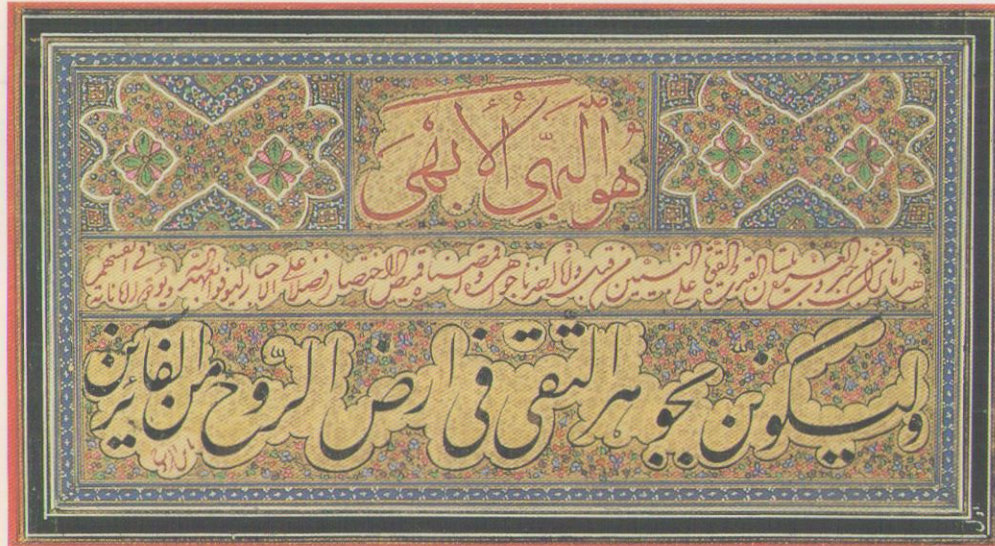 هو البهيّ الأبهى
هذا ما نزّل من جبروت العزّة بلسان القدرة و القوّة على النبيّين من قبل و انّا اخذنا جواهره و اقمصناه قميص الاختصار فضلا على الاحبار ليوفوا بعهد اللّه و يؤدّوا اماناته فى انفسهم
وليكوننّ بجوهر التّقى فى ارض الرّوح من الفآئزين